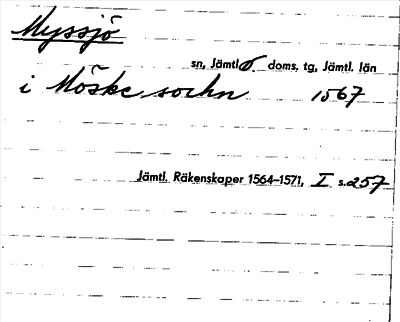 Myssjö
sn, Jämtl ö. doms. tg, Jämtl. län
i Möske sochn 1567
Jämtl. Räkenskaper 1564–1571, I s. 257